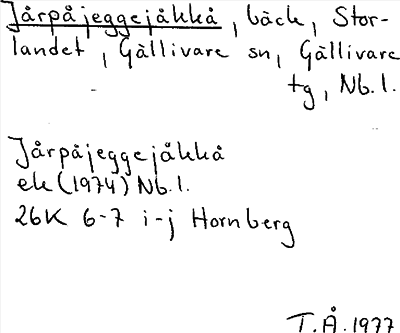 Jårpåjeggejåkkå, bäck, Stor-
landet, Gällivare sn, Gällivare
tg, Nb.l.
Jårpåjeggejåkkå
ek (1974) Nb.l.
26K 6-7 i-j Hornberg
T.Å.1977